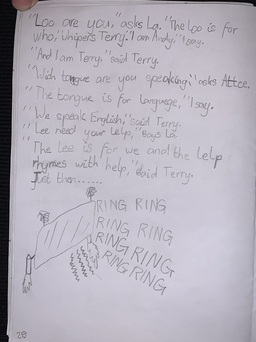 "Loo are you," asks La. "The Loo is for
who," whispers Terry. "I am Andy," I say.
"And I am Terry," said Terry.
"Wich tongue are you speaking," asks Attce.
"The tongue is for language," I say.
"We speak English," said Terry.
"Lee need your Lelp," says La
"The Lee is for we and the Lelp
rhymes with help," said Terry.
Just then......
RING RING
RING RING
RING RING
RING RING
28